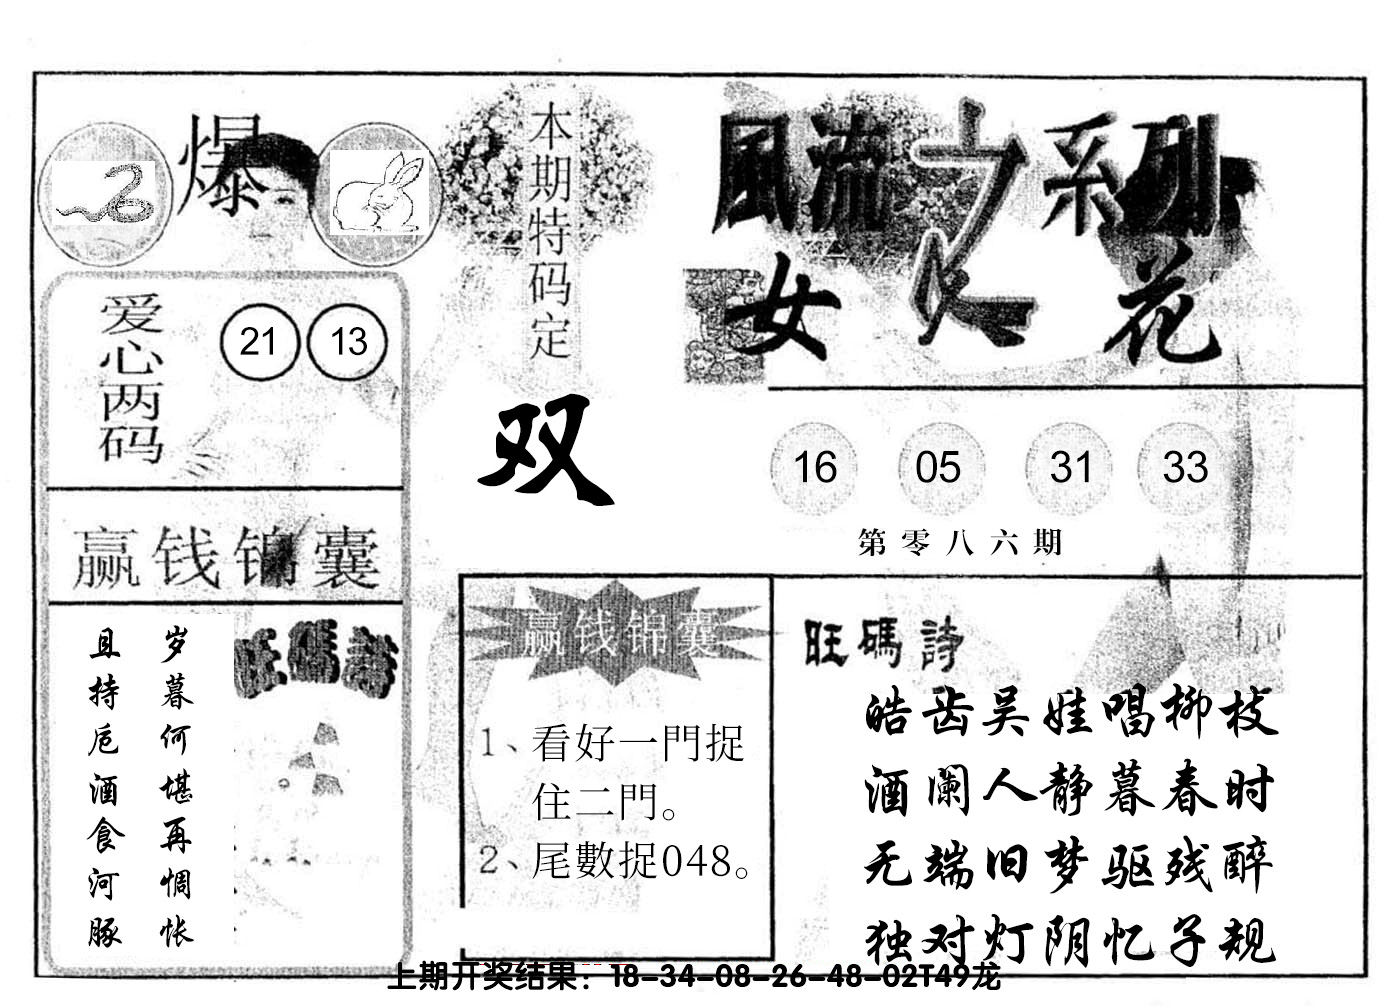 爆
本期特码定
双
風流之系列
女人花
爱心两码
21 13
16 05 31 33
第零八六期
赢钱锦囊
岁暮何堪再惆怅
且持卮酒食河豚
旺碼詩
赢钱锦囊
1、看好一門捉
住二門。
2、尾數捉048。
旺碼詩
皓齿吴娃唱柳枝
酒阑人静暮春时
无端旧梦驱残醉
独对灯阴忆子规
上期开奖结果：18-34-08-26-48-02T49龙